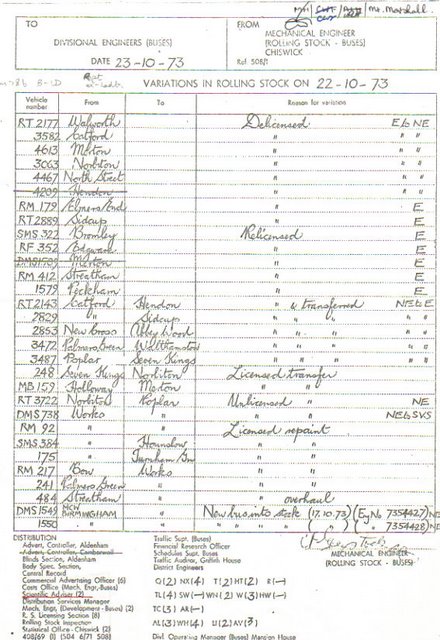 Mr. Marshall
TO
FROM
DIVISIONAL ENGINEERS (BUSES)
MECHANICAL ENGINEER
(ROLLING STOCK - BUSES)
CHISWICK
DATE 23-10-73
Ref. 508/1
VARIATIONS IN ROLLING STOCK ON 22-10-73
Vehicle number From To Reason for variation
RT 2177 Walworth Delicensed E b NE
3582 Catford " " "
4613 Merton " " "
3063 Norbiton " " "
4467 North Street " " "
4209 Hendon "
RM 179 Elmers End " E
RT 2889 Sidcup " E
SMS 322 Bromley Relicensed E
RF 352 Edgware " E
DMS 1509 Merton " E
RM 412 Streatham " E
1579 Peckham " E
RT 2143 Catford Hendon " & transferred NE b E
2829 " Sidcup " " " " "
2853 New Cross Abbey Wood " " " " "
3472 Palmers Green Walthamstow " " " " "
3487 Poplar Seven Kings " " " " "
248 Seven Kings Norbiton Licensed transfer
MB 159 Holloway Merton "
RT 3722 Norbiton Poplar Unlicensed " NE
DMS 738 Works " " NE b SVS
RM 92 " " Licensed repaint
SMS 384 " Hounslow " "
175 " Turnham Gn " "
RM 217 Bow Works " "
241 Palmers Green " " "
484 Streatham " " overhaul
DMS 1549 MCW BIRMINGHAM " New bus into stock (17.10.73) (Eng No 7354427) NE
1550 " " " " ( " ) ( " 7354428) NE
MECHANICAL ENGINEER
(ROLLING STOCK - BUSES)
DISTRIBUTION
Advert. Controller, Aldenham
Advert. Controller, Camberwell
Blinds Section, Aldenham
Body Spec. Section,
Central Record
Commercial Advertising Officer (6)
Costs Office (Mech. Engr-Buses)
Scientific Adviser (2)
Distribution Services Manager
Mech. Engr. (Development - Buses) (2)
R. S. Licensing Section (8)
Rolling Stock Inspector (2)
Statistical Office - Chiswick (2)
408/69 (1) (504 6/71 508)
Traffic Supt. (Buses)
Financial Research Officer
Schedules Supt. Buses
Traffic Auditor, Griffith House
District Engineers
Q (2) NX (4) T (2) HT (2) R (-)
TL (4) SW (-) WN (2) W (3) HW (-)
TC (3) AR (-)
AL (3) WH (4) U (2) AV (3)
Divl. Operating Manager (Buses) Mansion House